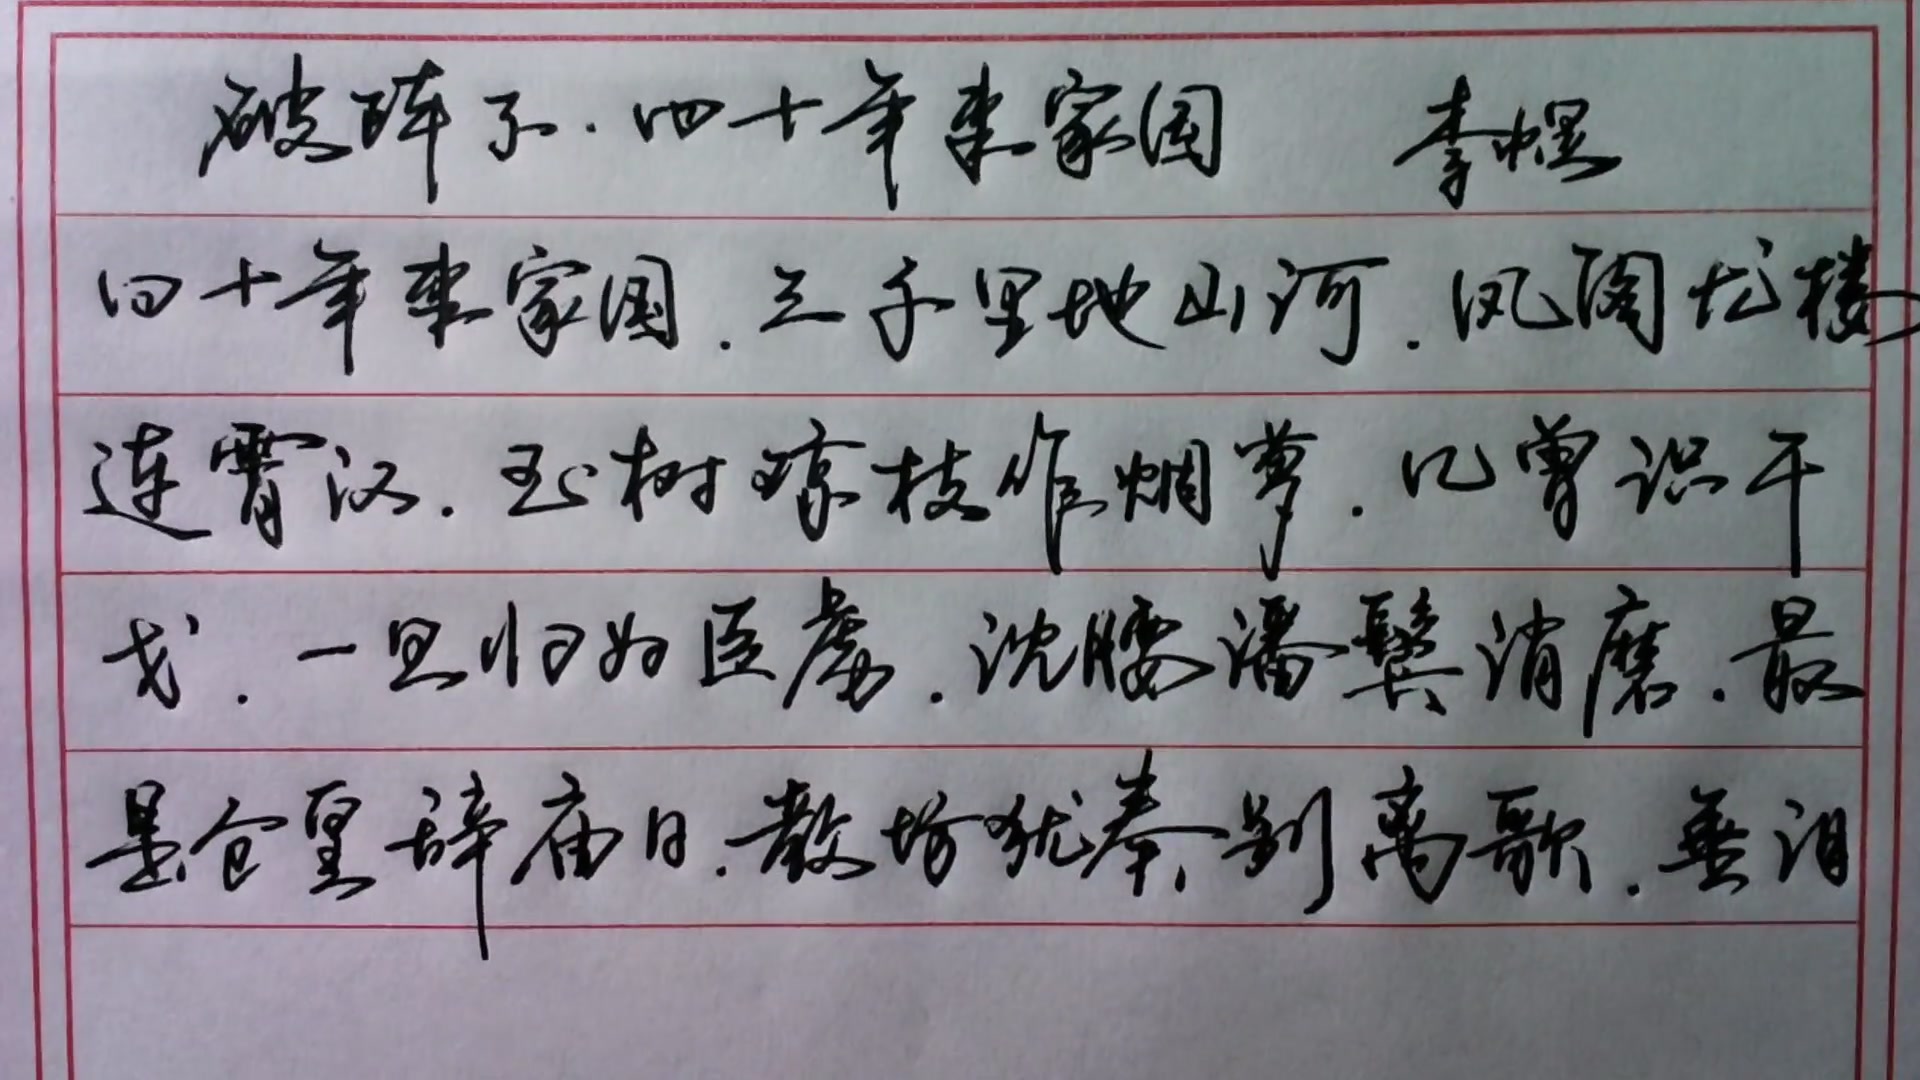 破阵子.四十年来家国 李煜
四十年来家国.三千里地山河.凤阁龙楼
连霄汉.玉树琼枝作烟萝.几曾识干
戈.一旦归为臣虏.沈腰潘鬓消磨.最
是仓皇辞庙日.教坊犹奏别离歌.垂泪